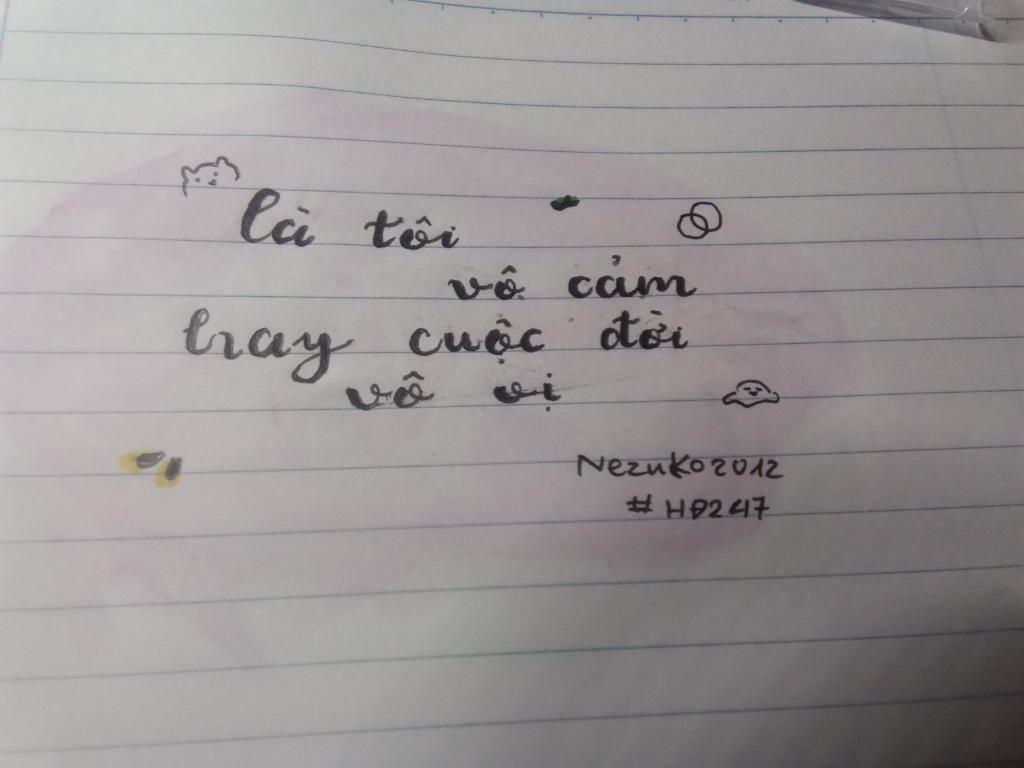 là tôi
vô cảm
hay cuộc đời
vô vị
Nezuko2012
#HĐ247